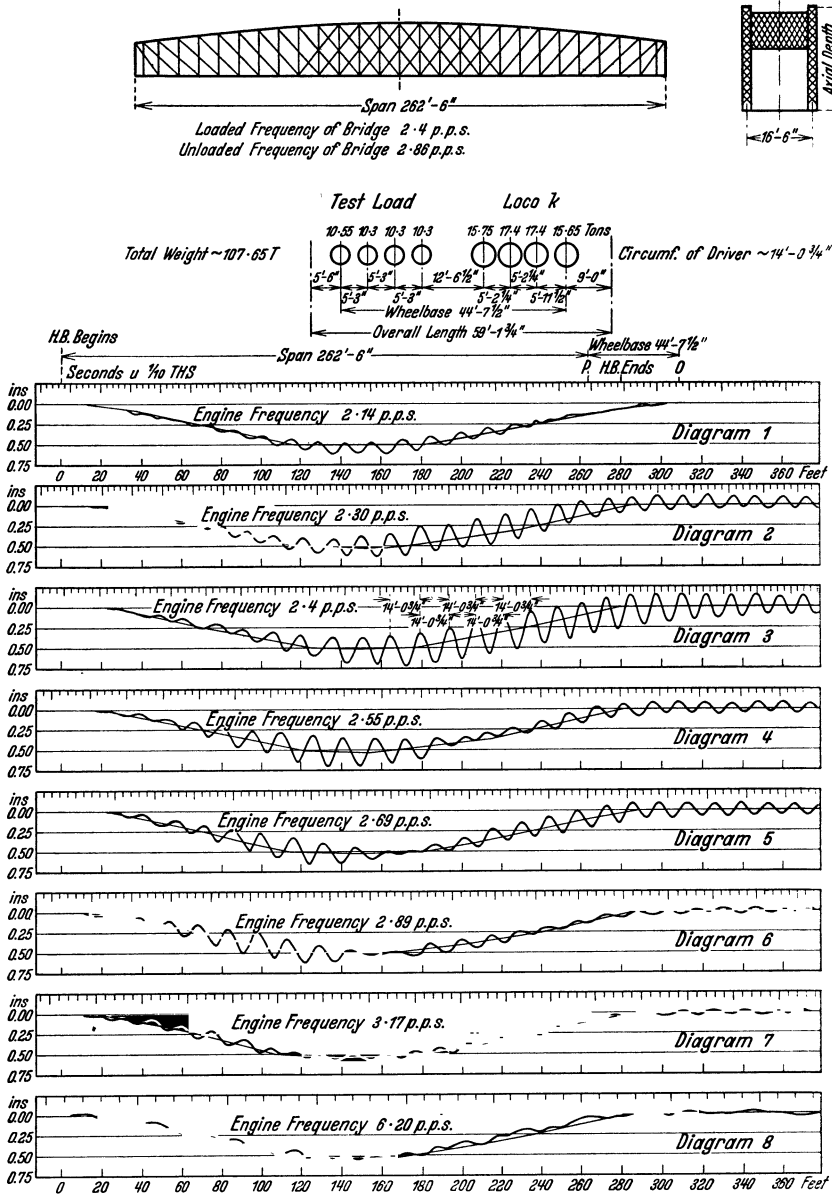 Axial Depth
Span 262'-6"
Loaded Frequency of Bridge 2·4 p.p.s.
Unloaded Frequency of Bridge 2·86 p.p.s.
16'-6"
Test Load Loco k
10·55 10·3 10·3 10·3 15·75 17·4 17·4 15·65 Tons
Total Weight ~107·65 T
Circumf. of Driver ~14'-0 3/4"
5'-6" 5'-3" 12'-6 1/2" 5'-2 1/4" 9'-0"
5'-3" 5'-3" 5'-2 1/4" 5'-11 1/2"
Wheelbase 44'-7 1/2"
Overall Length 59'-1 3/4"
H.B. Begins
Span 262'-6"
Wheelbase 44'-7 1/2"
Seconds u 1/10 THS
P. H.B. Ends O
ins
0.00
0.25
0.50
0.75
Engine Frequency 2·14 p.p.s.
Diagram 1
0 20 40 60 80 100 120 140 160 180 200 220 240 260 280 300 320 340 360 Feet
ins
0.00
0.25
0.50
0.75
Engine Frequency 2·30 p.p.s.
Diagram 2
ins
0.00
0.25
0.50
0.75
Engine Frequency 2·4 p.p.s.
14'-0 3/4" 14'-0 3/4" 14'-0 3/4"
14'-0 3/4" 14'-0 3/4"
Diagram 3
ins
0.00
0.25
0.50
0.75
Engine Frequency 2·55 p.p.s.
Diagram 4
ins
0.00
0.25
0.50
0.75
Engine Frequency 2·69 p.p.s.
Diagram 5
ins
0.00
0.25
0.50
0.75
Engine Frequency 2·89 p.p.s.
Diagram 6
ins
0.00
0.25
0.50
0.75
Engine Frequency 3·17 p.p.s.
Diagram 7
ins
0.00
0.25
0.50
0.75
Engine Frequency 6·20 p.p.s.
Diagram 8
0 20 40 60 80 100 120 140 160 180 200 220 240 260 280 300 320 340 360 Feet